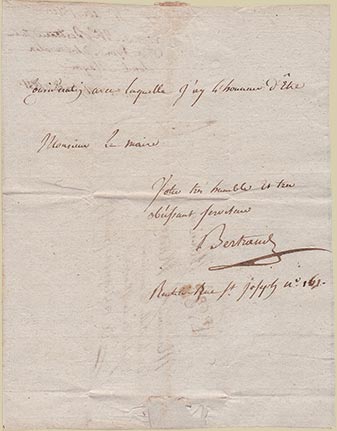 avec laquelle j'ay l'honneur d'Etre
Monsieur Le maire
Votre tres humble et tres
obeissant serviteur
Bertrand
Rue St Joseph n° 161.